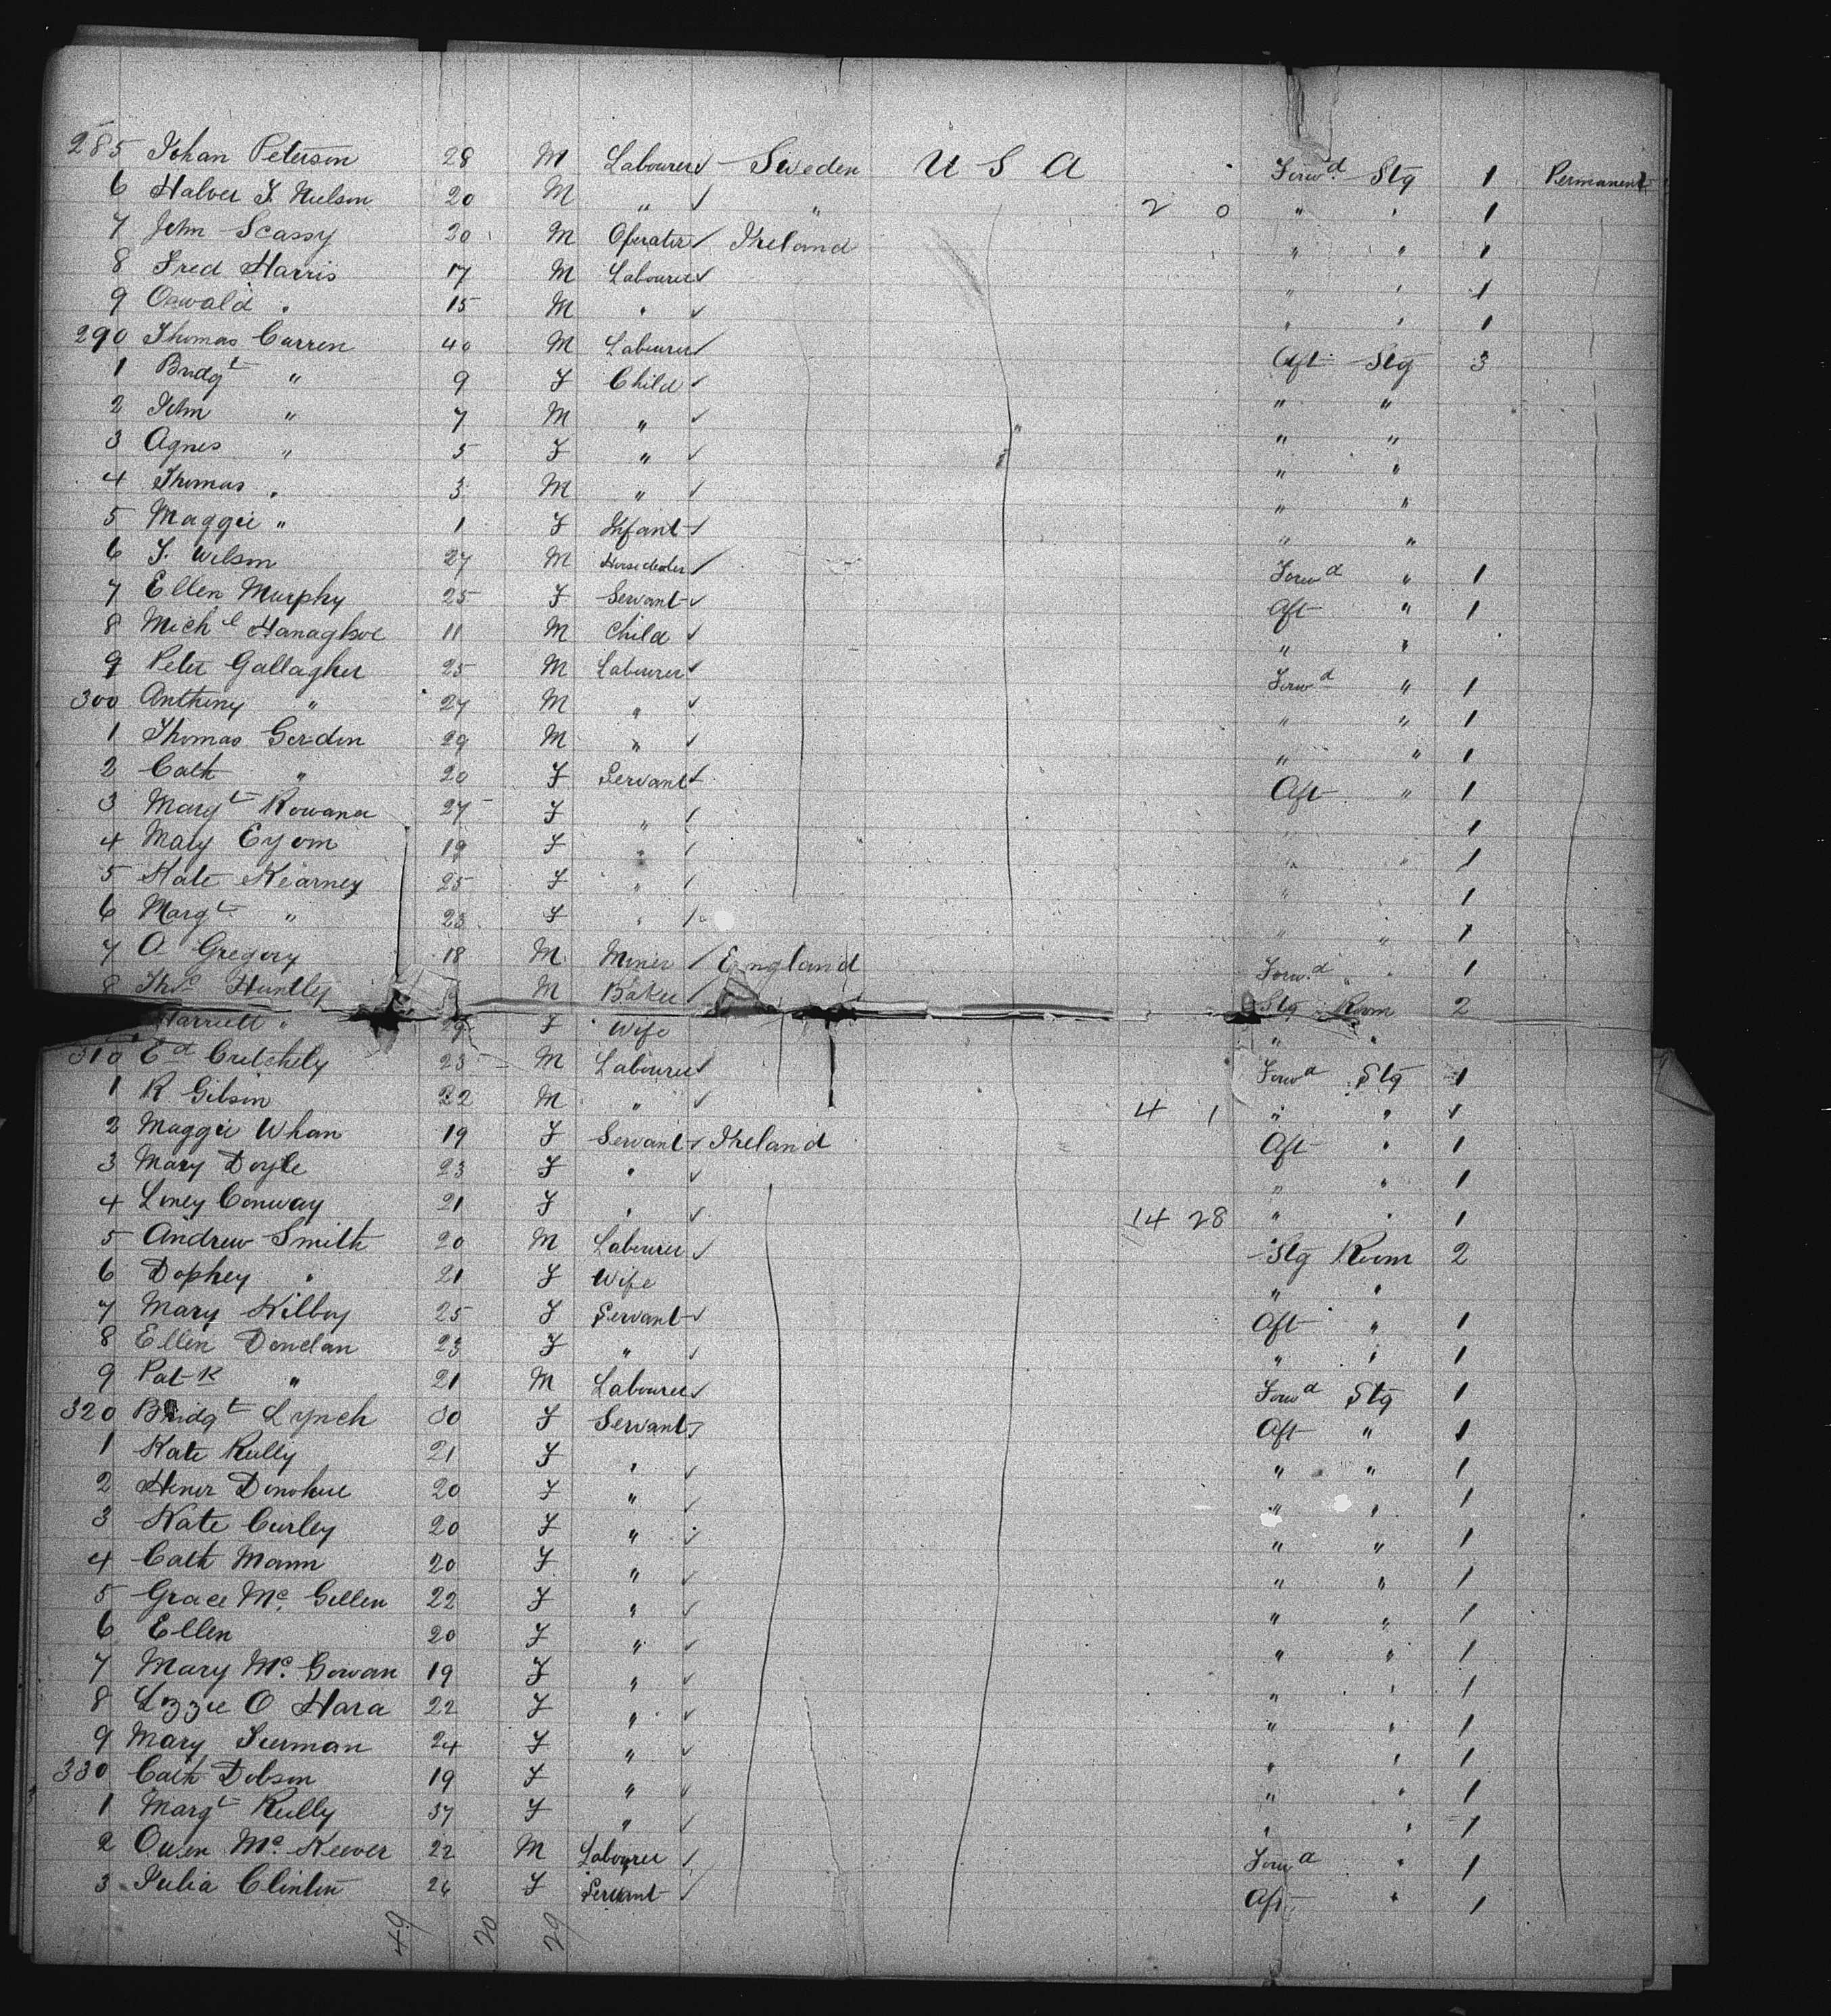 285 Johan Peterson 28 M Labourer ✓ Sweden U S A Forwd Stg 1 Permanent
6 Halver J. Nielson 20 M " ✓ " 2 0 " " 1
7 John Scassy 20 M Operater ✓ Ireland " " 1
8 Fred Harris 17 M Labourer ✓ " " 1
9 Oswald " 15 M " ✓ " " 1
290 Thomas Carren 40 M Labourer ✓ Aft Stg 3
1 Bridgt " 9 F Child ✓ " "
2 John " 7 M " ✓ " "
3 Agnes " 5 F " ✓ " "
4 Thomas " 3 M " ✓ " "
5 Maggie " 1 F Infant ✓ " "
6 J. Wilson 27 M Horsedealer ✓ Forwd " 1
7 Ellen Murphy 25 F Servant ✓ Aft " 1
8 Michl Hanaghoe 11 M Child ✓ " "
9 Peter Gallagher 25 M Labourer ✓ Forwd " 1
300 Anthony " 27 M " ✓ " " 1
1 Thomas Gordon 29 M " ✓ " " 1
2 Cath " 20 F Servant ✓ Aft " 1
3 Margt Rowana 27 F " ✓ " 1
4 Mary 19 F " ✓ " " 1
5 Kate Kearney 25 F " ✓ " 1
6 Margt " 23 F " ✓ " " 1
7 O Gregory 18 M Miner ✓ England Forwd " 1
8 Thos Huntley M Baker ✓ Stg Room 2
Harriett " 29 F Wife " "
310 Ed Critchely 25 M Labourer ✓ Forwd Stg 1
1 R Gibson 22 M " ✓ 4 1 " " 1
2 Maggie Whan 19 F Servant ✓ Ireland Aft " 1
3 Mary Doyle 23 F " ✓ " " 1
4 Liney Conway 21 F " ✓ 14 28 " " 1
5 Andrew Smith 20 M Labourer ✓ Stg Room 2
6 Dophey " 21 F Wife " "
7 Mary Kilboy 25 F Servant ✓ Aft " 1
8 Ellen Donelan 23 F " ✓ " " 1
9 Patk " 21 M Labourer ✓ Forwd Stg 1
320 Bridgt Lynch 30 F Servant ✓ Aft " 1
1 Kate Reilly 21 F " ✓ " " 1
2 Honor Donohue 20 F " ✓ " " 1
3 Kate Curley 20 F " ✓ " " 1
4 Cath Mann 20 F " ✓ " " 1
5 Grace Mc. Gellen 22 F " ✓ " " 1
6 Ellen 20 F " ✓ " " 1
7 Mary Mc. Gowan 19 F " ✓ " " 1
8 Lizzie O Hara 22 F " ✓ " " 1
9 Mary 24 F " ✓ " " 1
330 Cath Dobson 19 F " ✓ " " 1
1 Margt Reilly 37 F " ✓ " " 1
2 Owen Mc. Keever 22 M Labourer ✓ Forwd " 1
3 Julia Clinton 26 F Servant ✓ Aft " 1
49 20 29